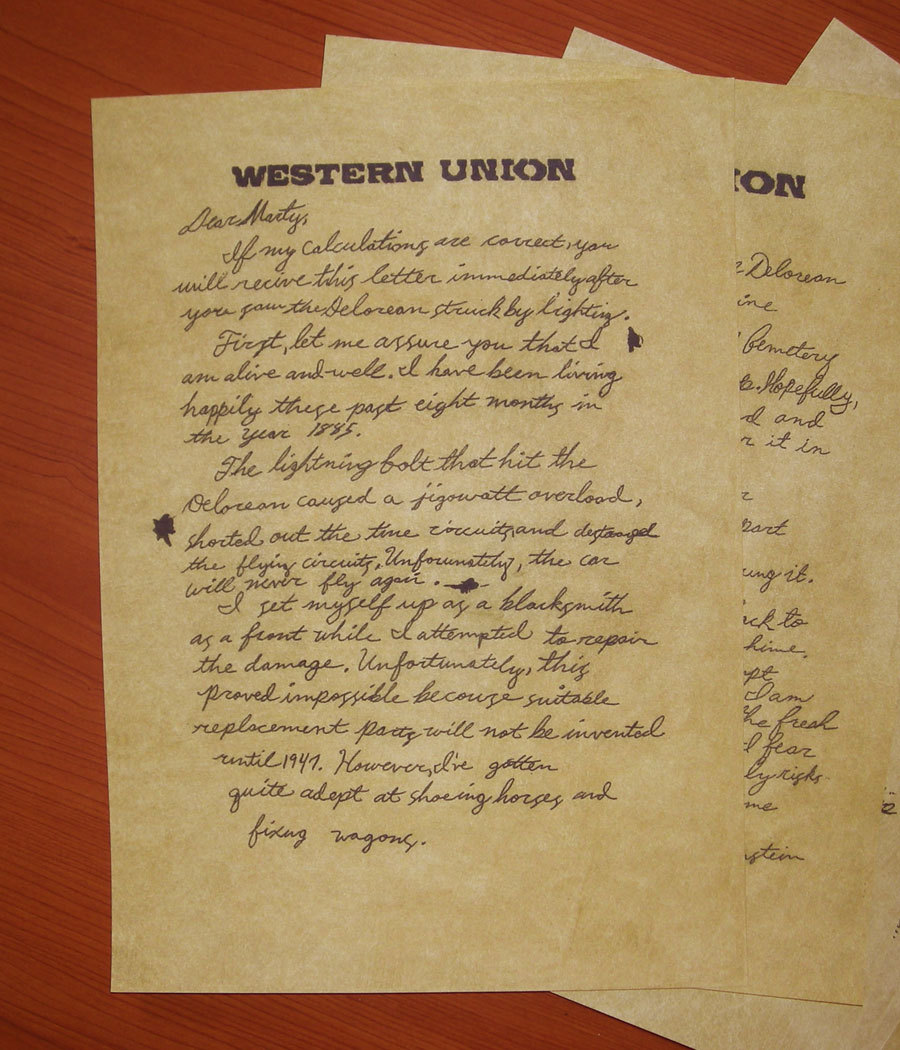 WESTERN UNION
Dear Marty,
If my calculations are correct, you
will recive this letter immediately after
you saw the Delorean struck by lighting.
First, let me assure you that I
am alive and well. I have been living
happily these past eight months in
the year 1885.
The lightning bolt that hit the
Delorean caused a jigowatt overload,
shorted out the time circuits, and destroyed
the flying circuits. Unforunately, the car
will never fly again.
I set myself up as a blacksmith
as a front while I attempted to repair
the damage. Unfortunately, this
proved impossible becouse suitable
replacement parts will not be invented
until 1947. However, I've gotten
quite adept at shoeing horses and
fixing wagons.
ION
Delorean
ine
Cemetery
Hopefully,
d and
r it in
r
part
ung it.
ack to
hime.
ept
I am
he freak
I fear
ly risks
me
nstein